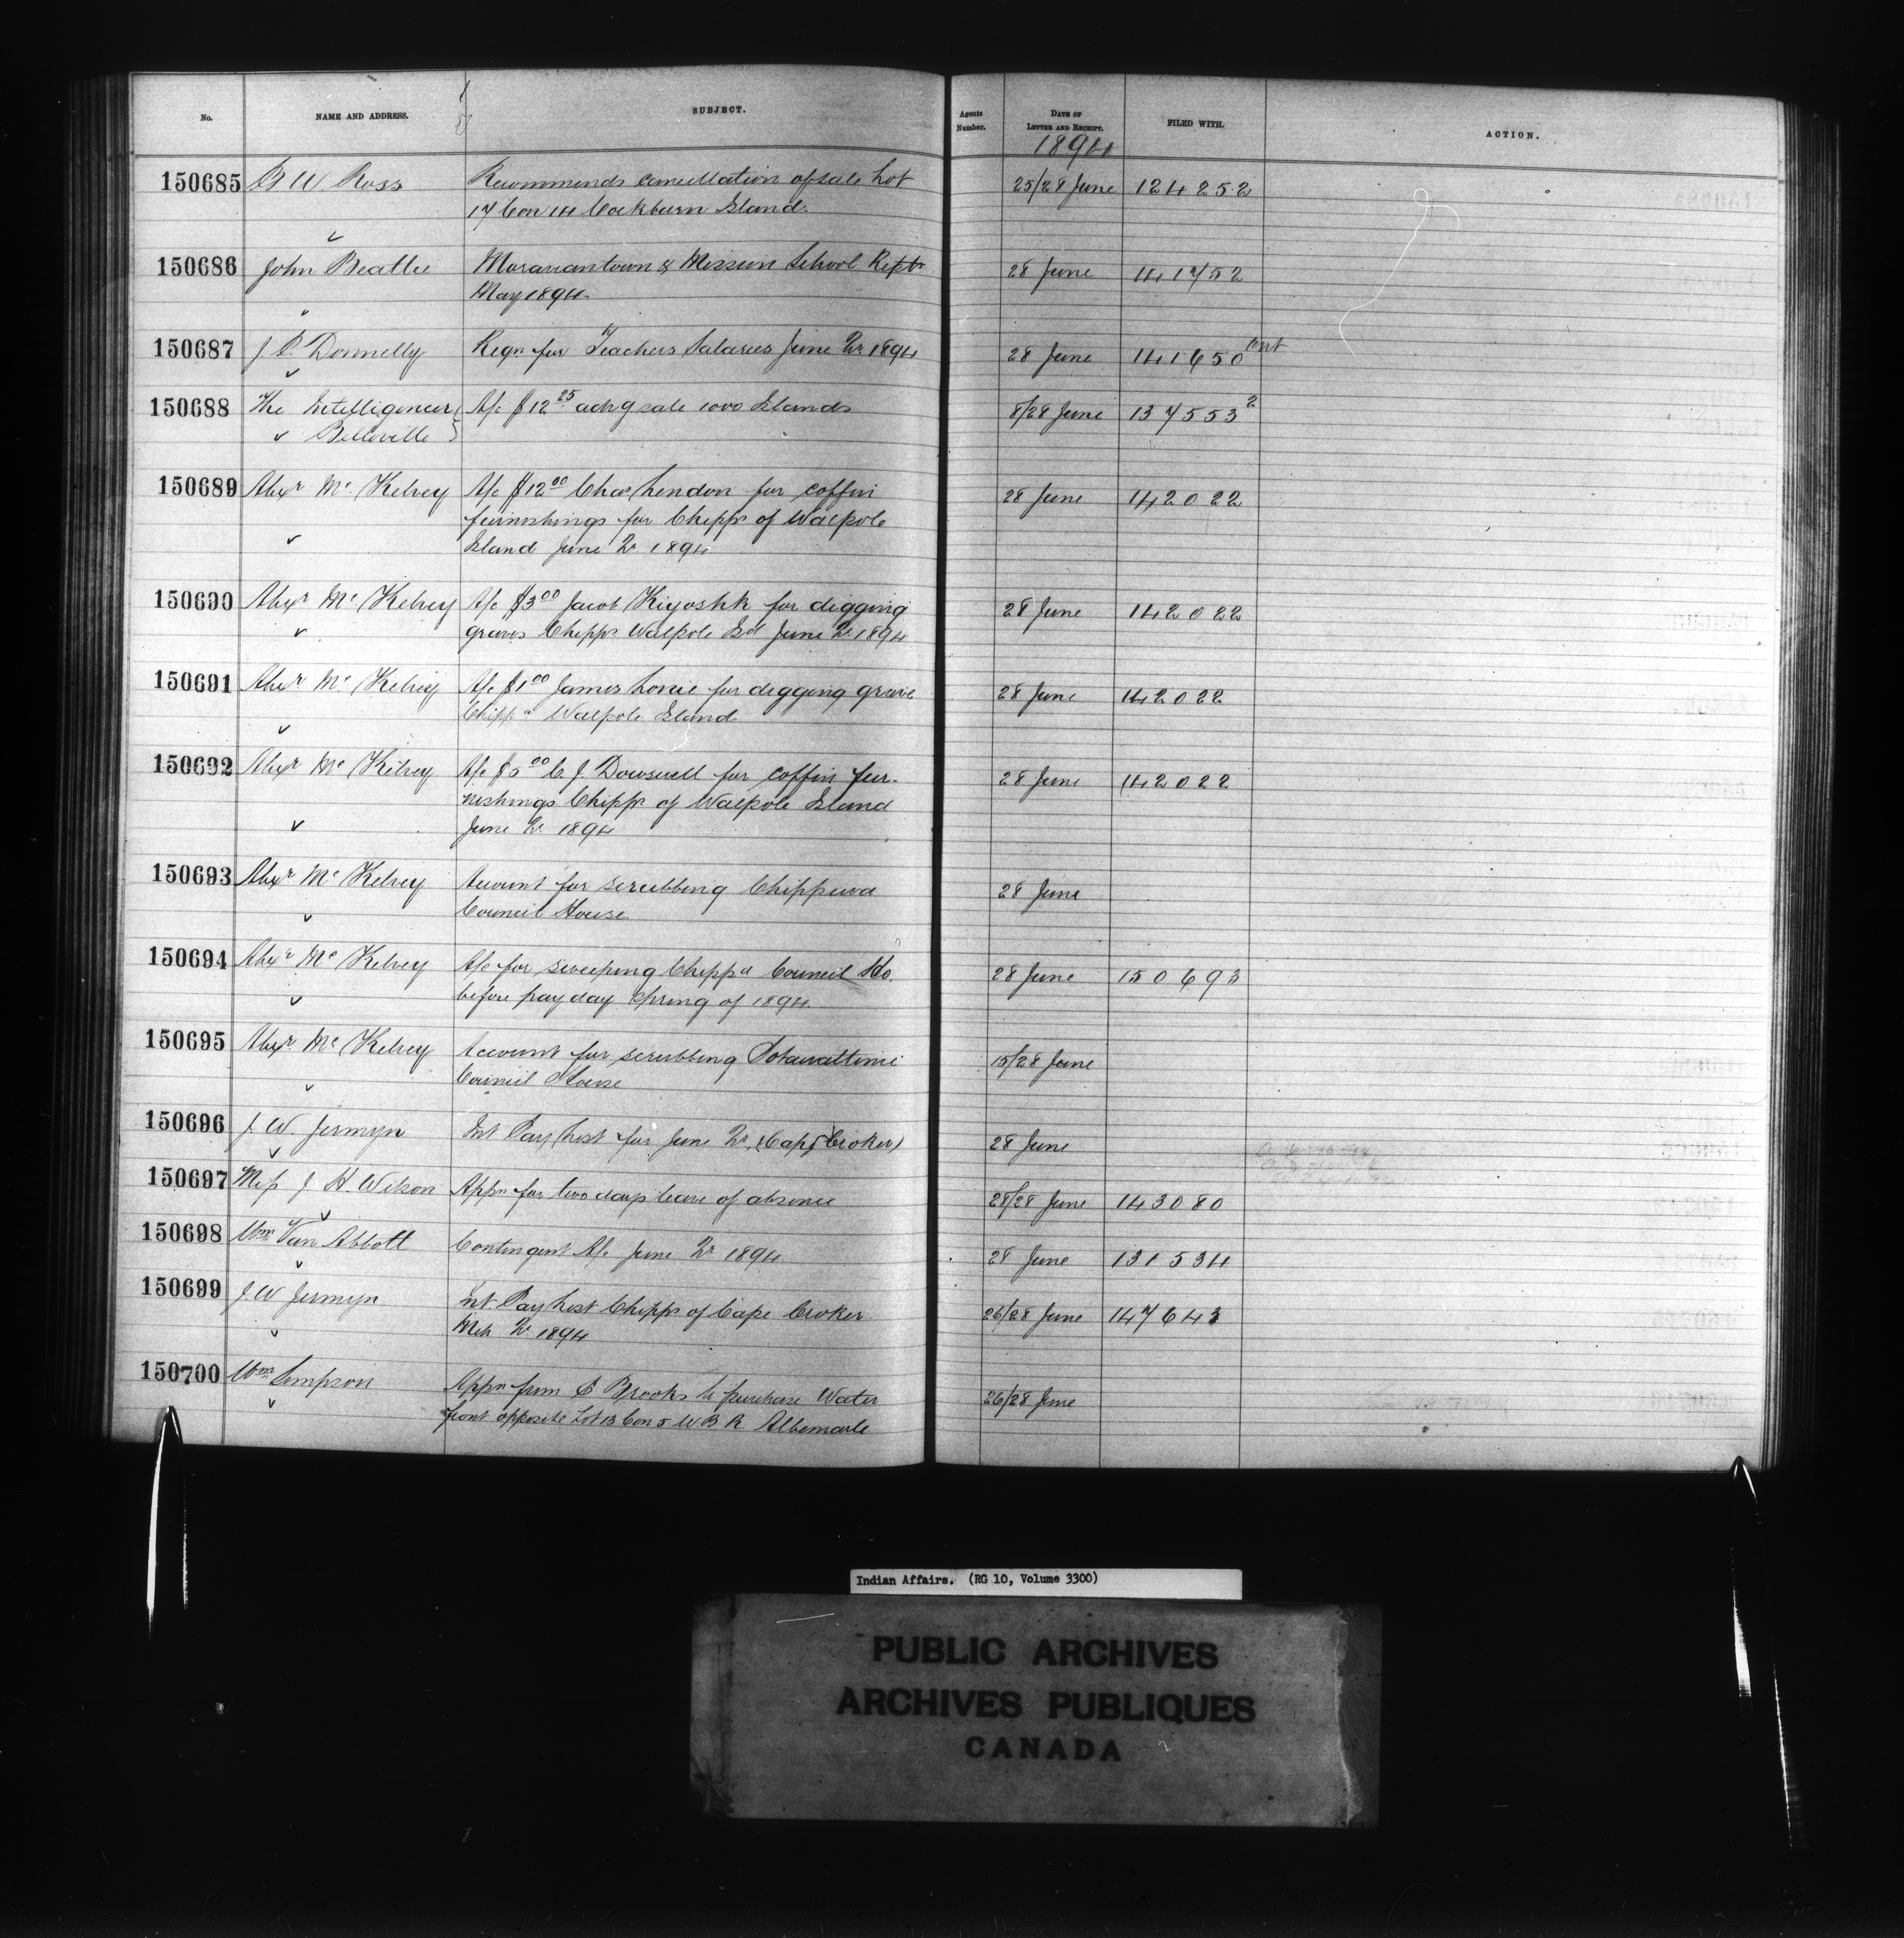 No. NAME AND ADDRESS. SUBJECT. Agents Number. DATE OF LETTER AND RECEIPT. FILED WITH. ACTION.
1894
150685 B W Ross Recommends cancellation of sale Lot 25/28 June 124252
17 Con 14 Cockburn Island.
150686 John Beattie Moraviantown & Mission School Repts 28 June 141752
May 1894.
150687 J. P. Donnelly Reqn for Teachers Salaries June Qr 1894 28 June 141650 Cont
150688 The Intelligencer A/c $12 25 advg sale 1000 Islands 8/28 June 137553 2
Belleville
150689 Alexr Mc Kelvey A/c $12 00 Chas Lendon for coffin 28 June 142022
furnishings for Chipps of Walpole
Island June Qr 1894
150690 Alexr Mc Kelvey A/c $3 00 Jacob Kiyoshk for digging 28 June 142022
graves Chipps Walpole Isd June Qr 1894
150691 Alexr Mc Kelvey A/c $1 00 James Lonie for digging grave 28 June 142022
Chippa Walpole Island
150692 Alexr Mc Kelvey A/c $5 00 C. J. Dowswell for coffin fur- 28 June 142022
nishings Chipps of Walpole Island
June Qr 1894
150693 Alexr Mc Kelvey Account for scrubbing Chippewa 28 June
Council House
150694 Alexr Mc Kelvey A/c for sweeping Chippa Council Ho. 28 June 150693
before pay day Spring of 1894.
150695 Alexr Mc Kelvey Account for scrubbing Potawattimi 15/28 June
Council House
150696 J. W. Jermyn Int Pay List for June Qr. (Cape Croker) 28 June
150697 Miss J H. Wilson Appn for two days leave of absence 28/28 June 143080
150698 Wm Van Abbott Contingent A/c June Qr 1894 28 June 131534
150699 J. W Jermyn Int. Pay List Chipps of Cape Croker 26/28 June 147643
Mch Qr 1894
150700 Wm Simpson Appn from Brooks to purchase Water 26/28 June
front opposite Lot 13 Con 5 W B R Albemarle
Indian Affairs. (RG 10, Volume 3300)
PUBLIC ARCHIVES
ARCHIVES PUBLIQUES
CANADA